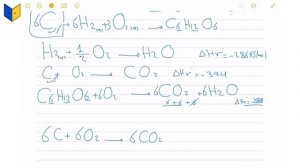 6C(s) + 6H2(g) + 3O2(g) → C6H12O6
H2(g) + 1/2 O2 → H2O ΔHr = -286 KJ/mol
C(s) + O2 → CO2 ΔHr = -394
C6H12O6 + 6O2 → 6CO2 + 6H2O
6C + 6O2 → 6CO2